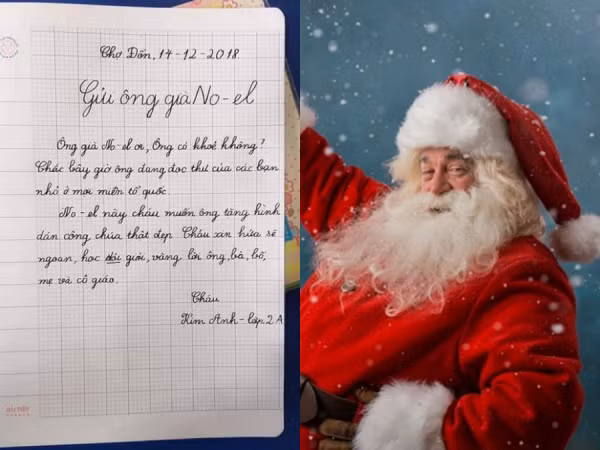 Chợ Đồn, 14-12-2018
Gửi ông già No-el
Ông già No-el ơi, Ông có khoẻ không?
Chắc bây giờ ông đang đọc thư của các bạn
nhỏ ở mọi miền tổ quốc.
No-el này cháu muốn ông tặng hình
dán công chúa thật đẹp. Cháu xin hứa sẽ
ngoan, học giỏi, vâng lời ông, bà, bố,
mẹ và cô giáo.
Cháu
Kim Anh - lớp 2A